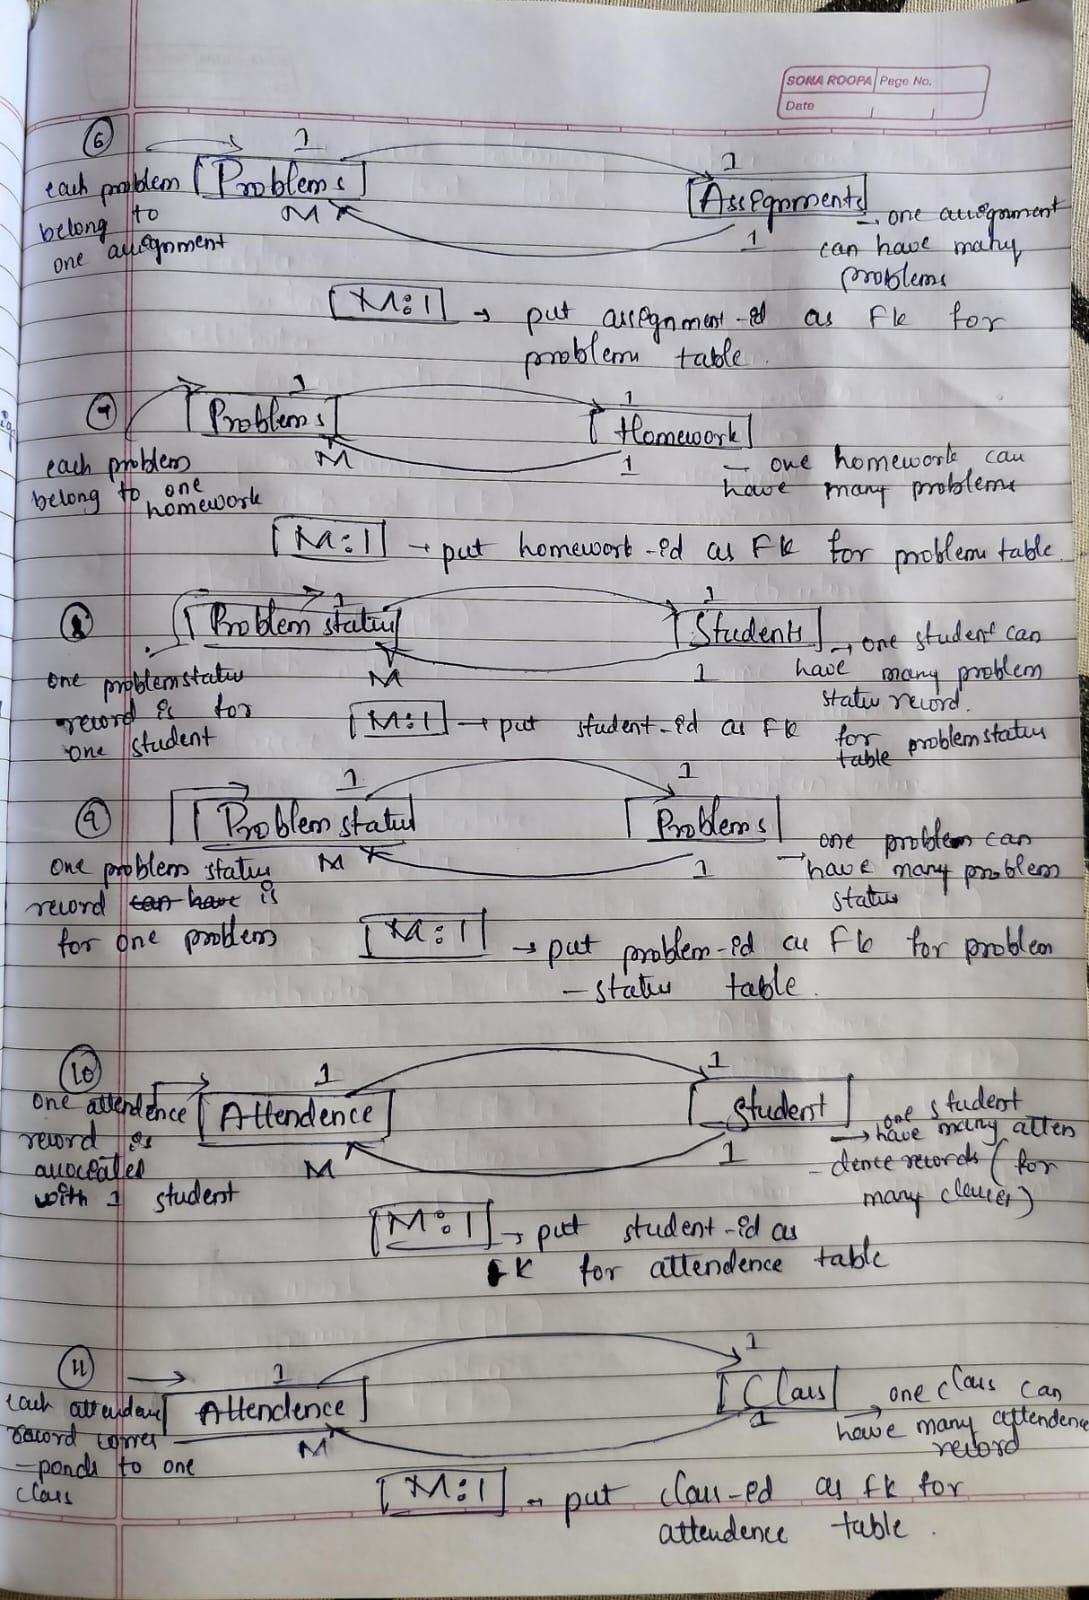 SONA ROOPA Page No.
Date
6
1
each problem [Problems]
belong to
one assignment
M
1
[Assignments]
1
→ one assignment
can have many
problems
[M:1] → put assignment-id as FK for
problem table.
7
1
[Problems]
M
each problem
belong to one
homework
1
[Homework]
1
— one homework can
have many problems
[M:1] → put homework-id as FK for problem table
8
1
[Problem status]
M
one problem status
record is for
one student
1
[Students]
1
→ one student can
have many problem
status record.
[M:1] → put student-id as FK for problem status
table
9
1
[Problem status
M
one problem status
record can have is
for one problem
1
[Problems]
1
→ one problem can
have many problem
status
[M:1] → put problem-id as FK for problem
-status table.
10
1
one attendence [Attendence]
record is
associated
with 1 student
M
1
[Student]
1
one student
→ have many atten
- dence records (for
many classes)
[M:1] → put student-id as
FK for attendence table
11
1
each attendance [Attendence]
record corres
-ponds to one
class
M
1
[Class]
1
→ one class can
have many attendence
record
[M:1] → put class-id as FK for
attendence table.